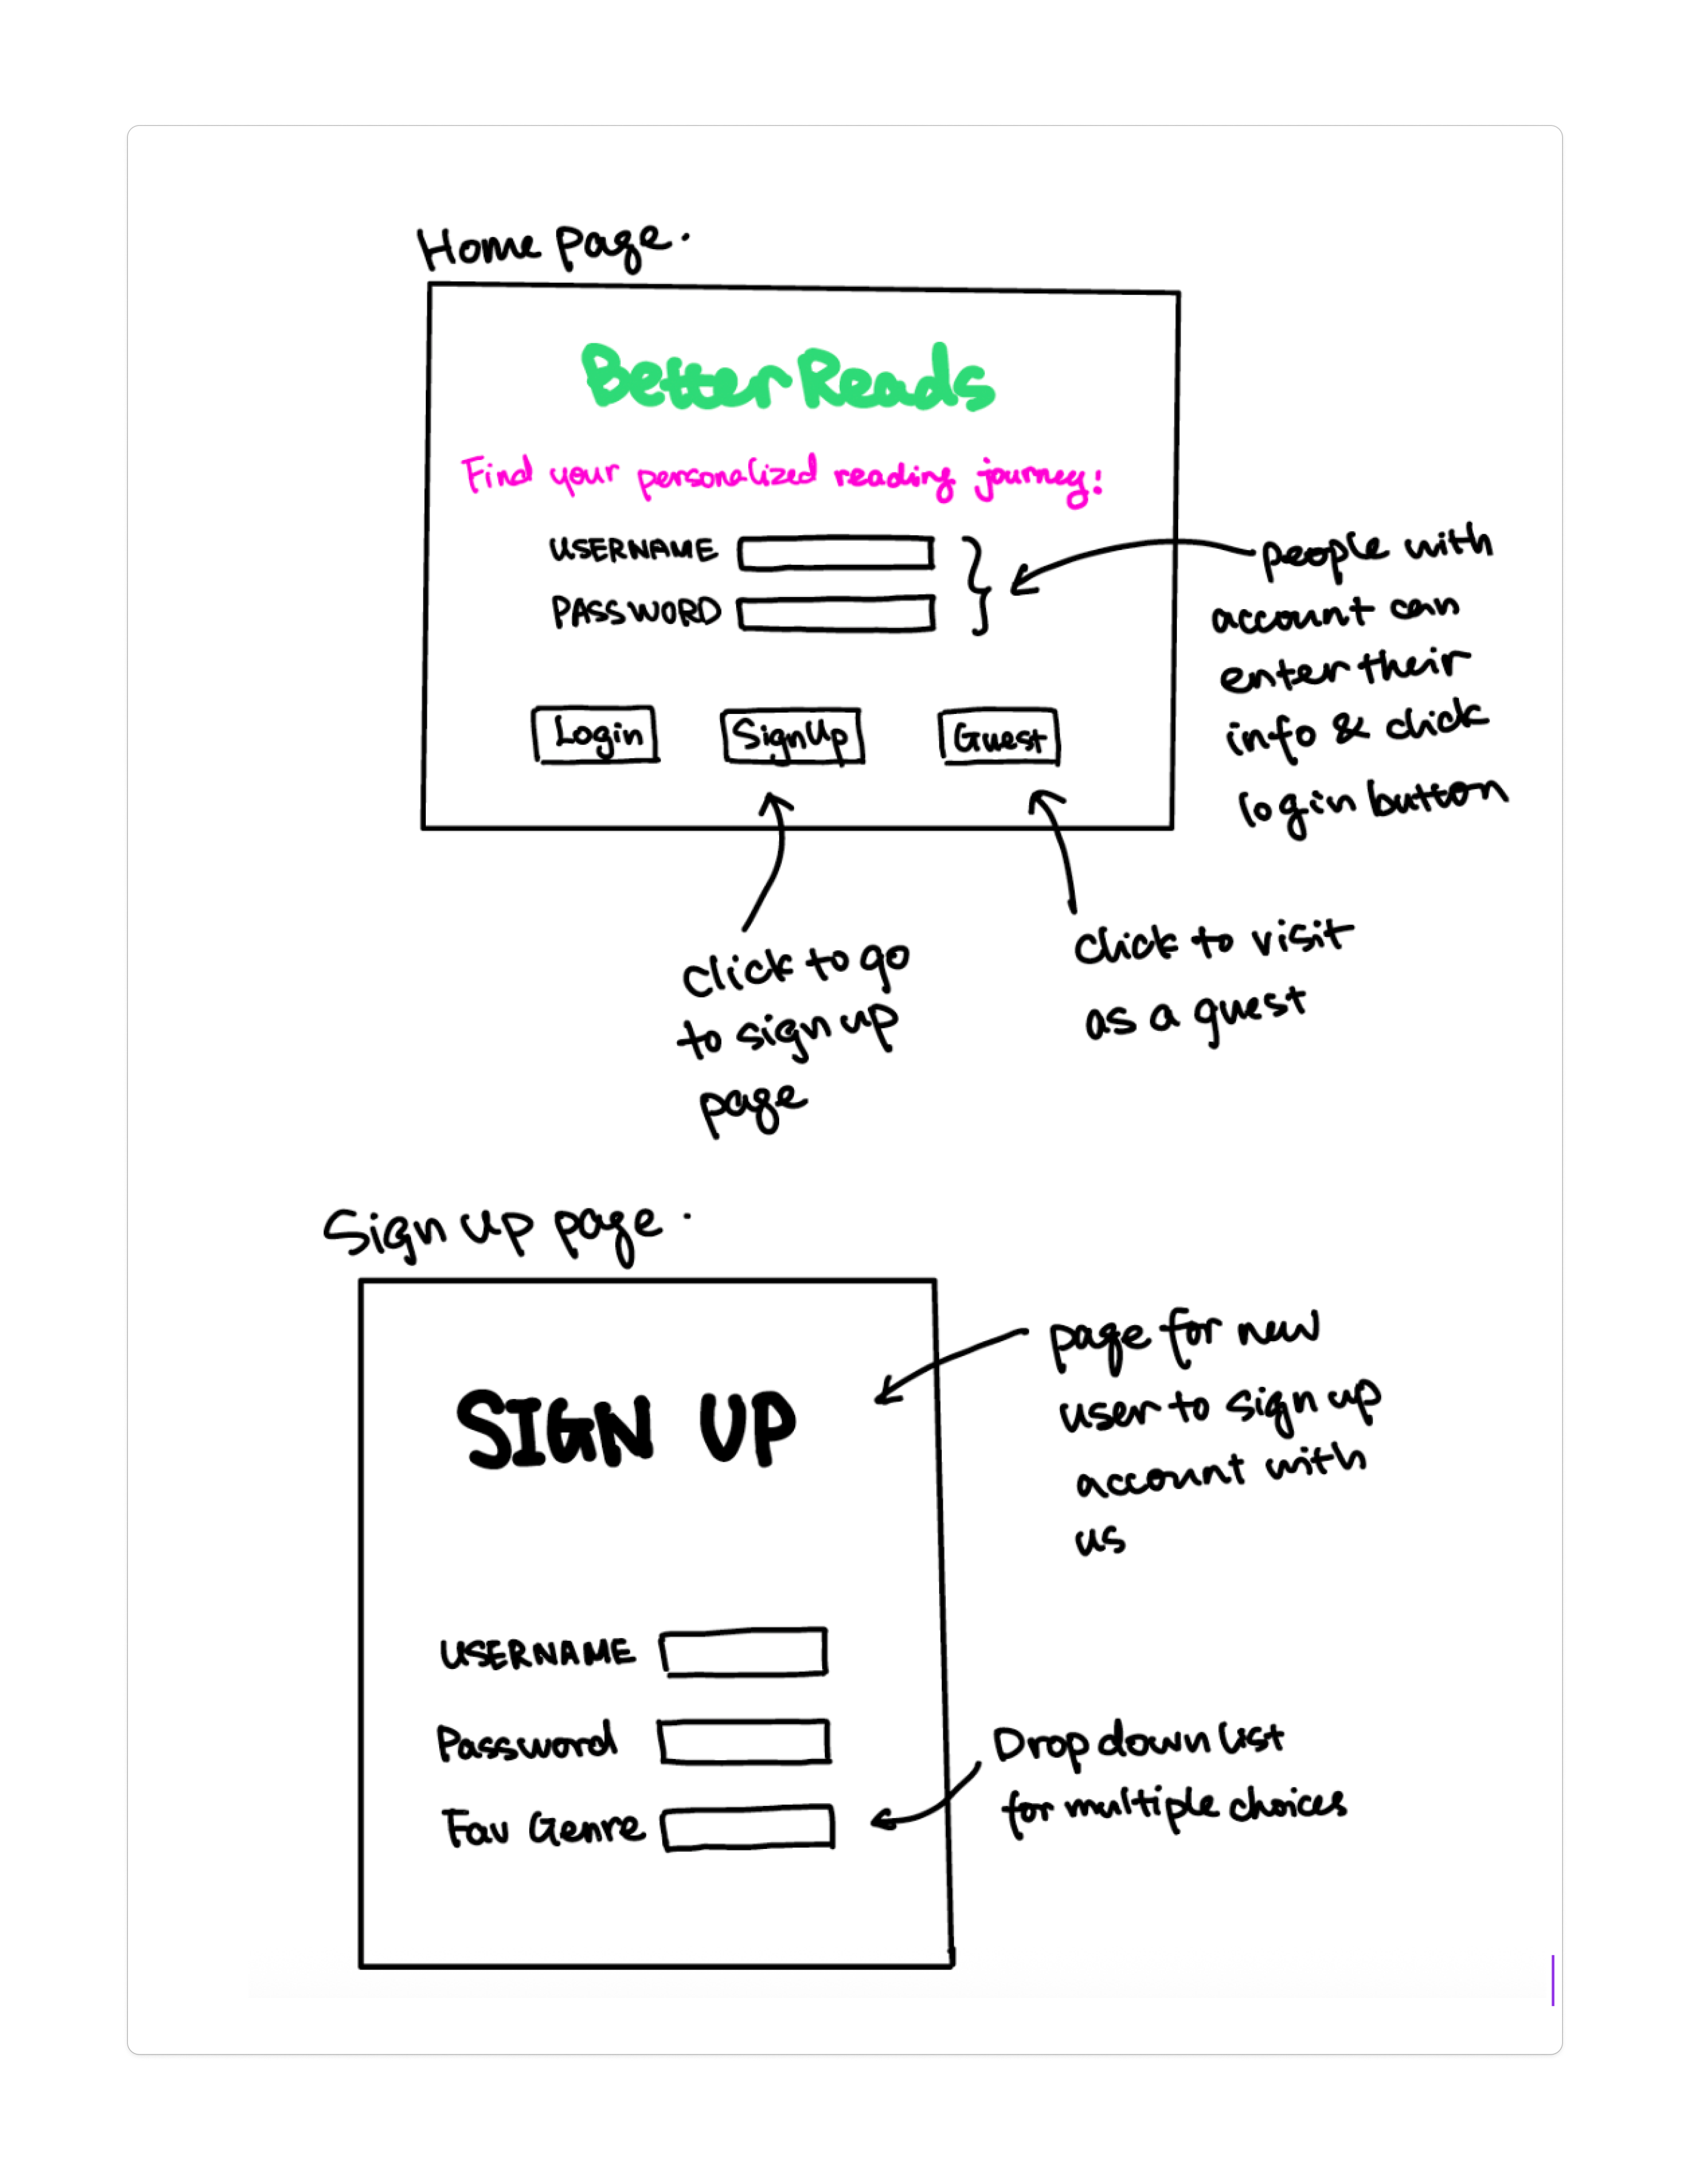 Home page.
BetterReads
Find your personalized reading journey!
USERNAME
PASSWORD
people with
account can
enter their
info & click
login button
Login
SignUp
Guest
Click to go
to sign up
page
Click to visit
as a guest
Sign up page.
SIGN UP
page for new
user to sign up
account with
us
USERNAME
Password
Fav Genre
Drop down list
for multiple choices